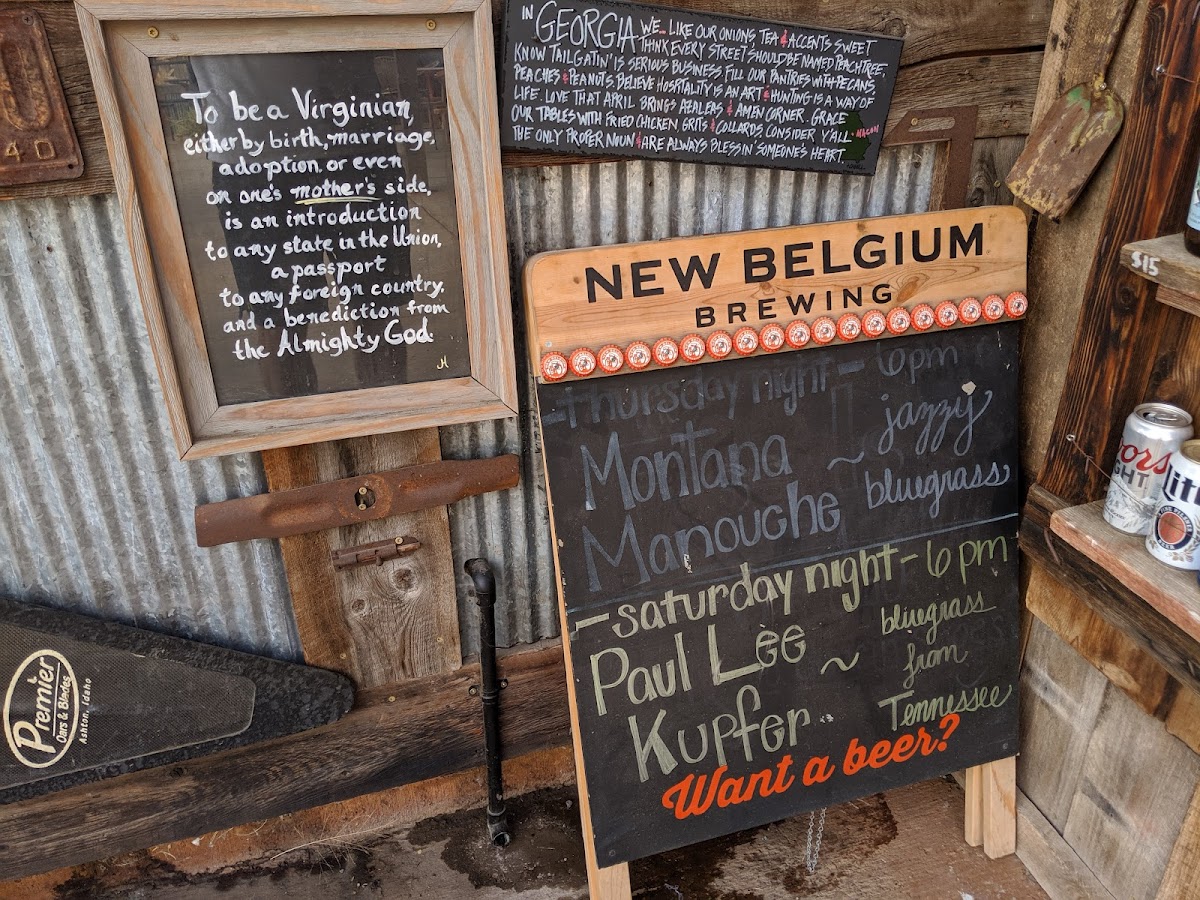 40
To be a Virginian,
either by birth, marriage,
adoption, or even
on one's mother's side,
is an introduction
to any state in the Union,
a passport
to any foreign country,
and a benediction from
the Almighty God.
IN GEORGIA WE... LIKE OUR ONIONS, TEA & ACCENTS SWEET
THINK EVERY STREET SHOULD BE NAMED PEACHTREE,
KNOW TAILGATIN' IS SERIOUS BUSINESS. FILL OUR PANTRIES WITH PECANS,
PEACHES & PEANUTS. BELIEVE HOSPITALITY IS AN ART & HUNTING IS A WAY OF
LIFE. LOVE THAT APRIL BRINGS AZALEAS & AMEN CORNER. GRACE
OUR TABLES WITH FRIED CHICKEN GRITS & COLLARDS. CONSIDER Y'ALL
THE ONLY PROPER NOUN & ARE ALWAYS BLESSIN' SOMEONE'S HEART
MACON
NEW BELGIUM
BREWING
-Thursday night- 6pm
Montana ~ jazzy
Manouche bluegrass
-saturday night- 6pm
Paul Lee ~ bluegrass
Kupfer from
Tennessee
Want a beer?
$15
LIGHT
Lite
Premier
Oars & Blades
Ashton, Idaho